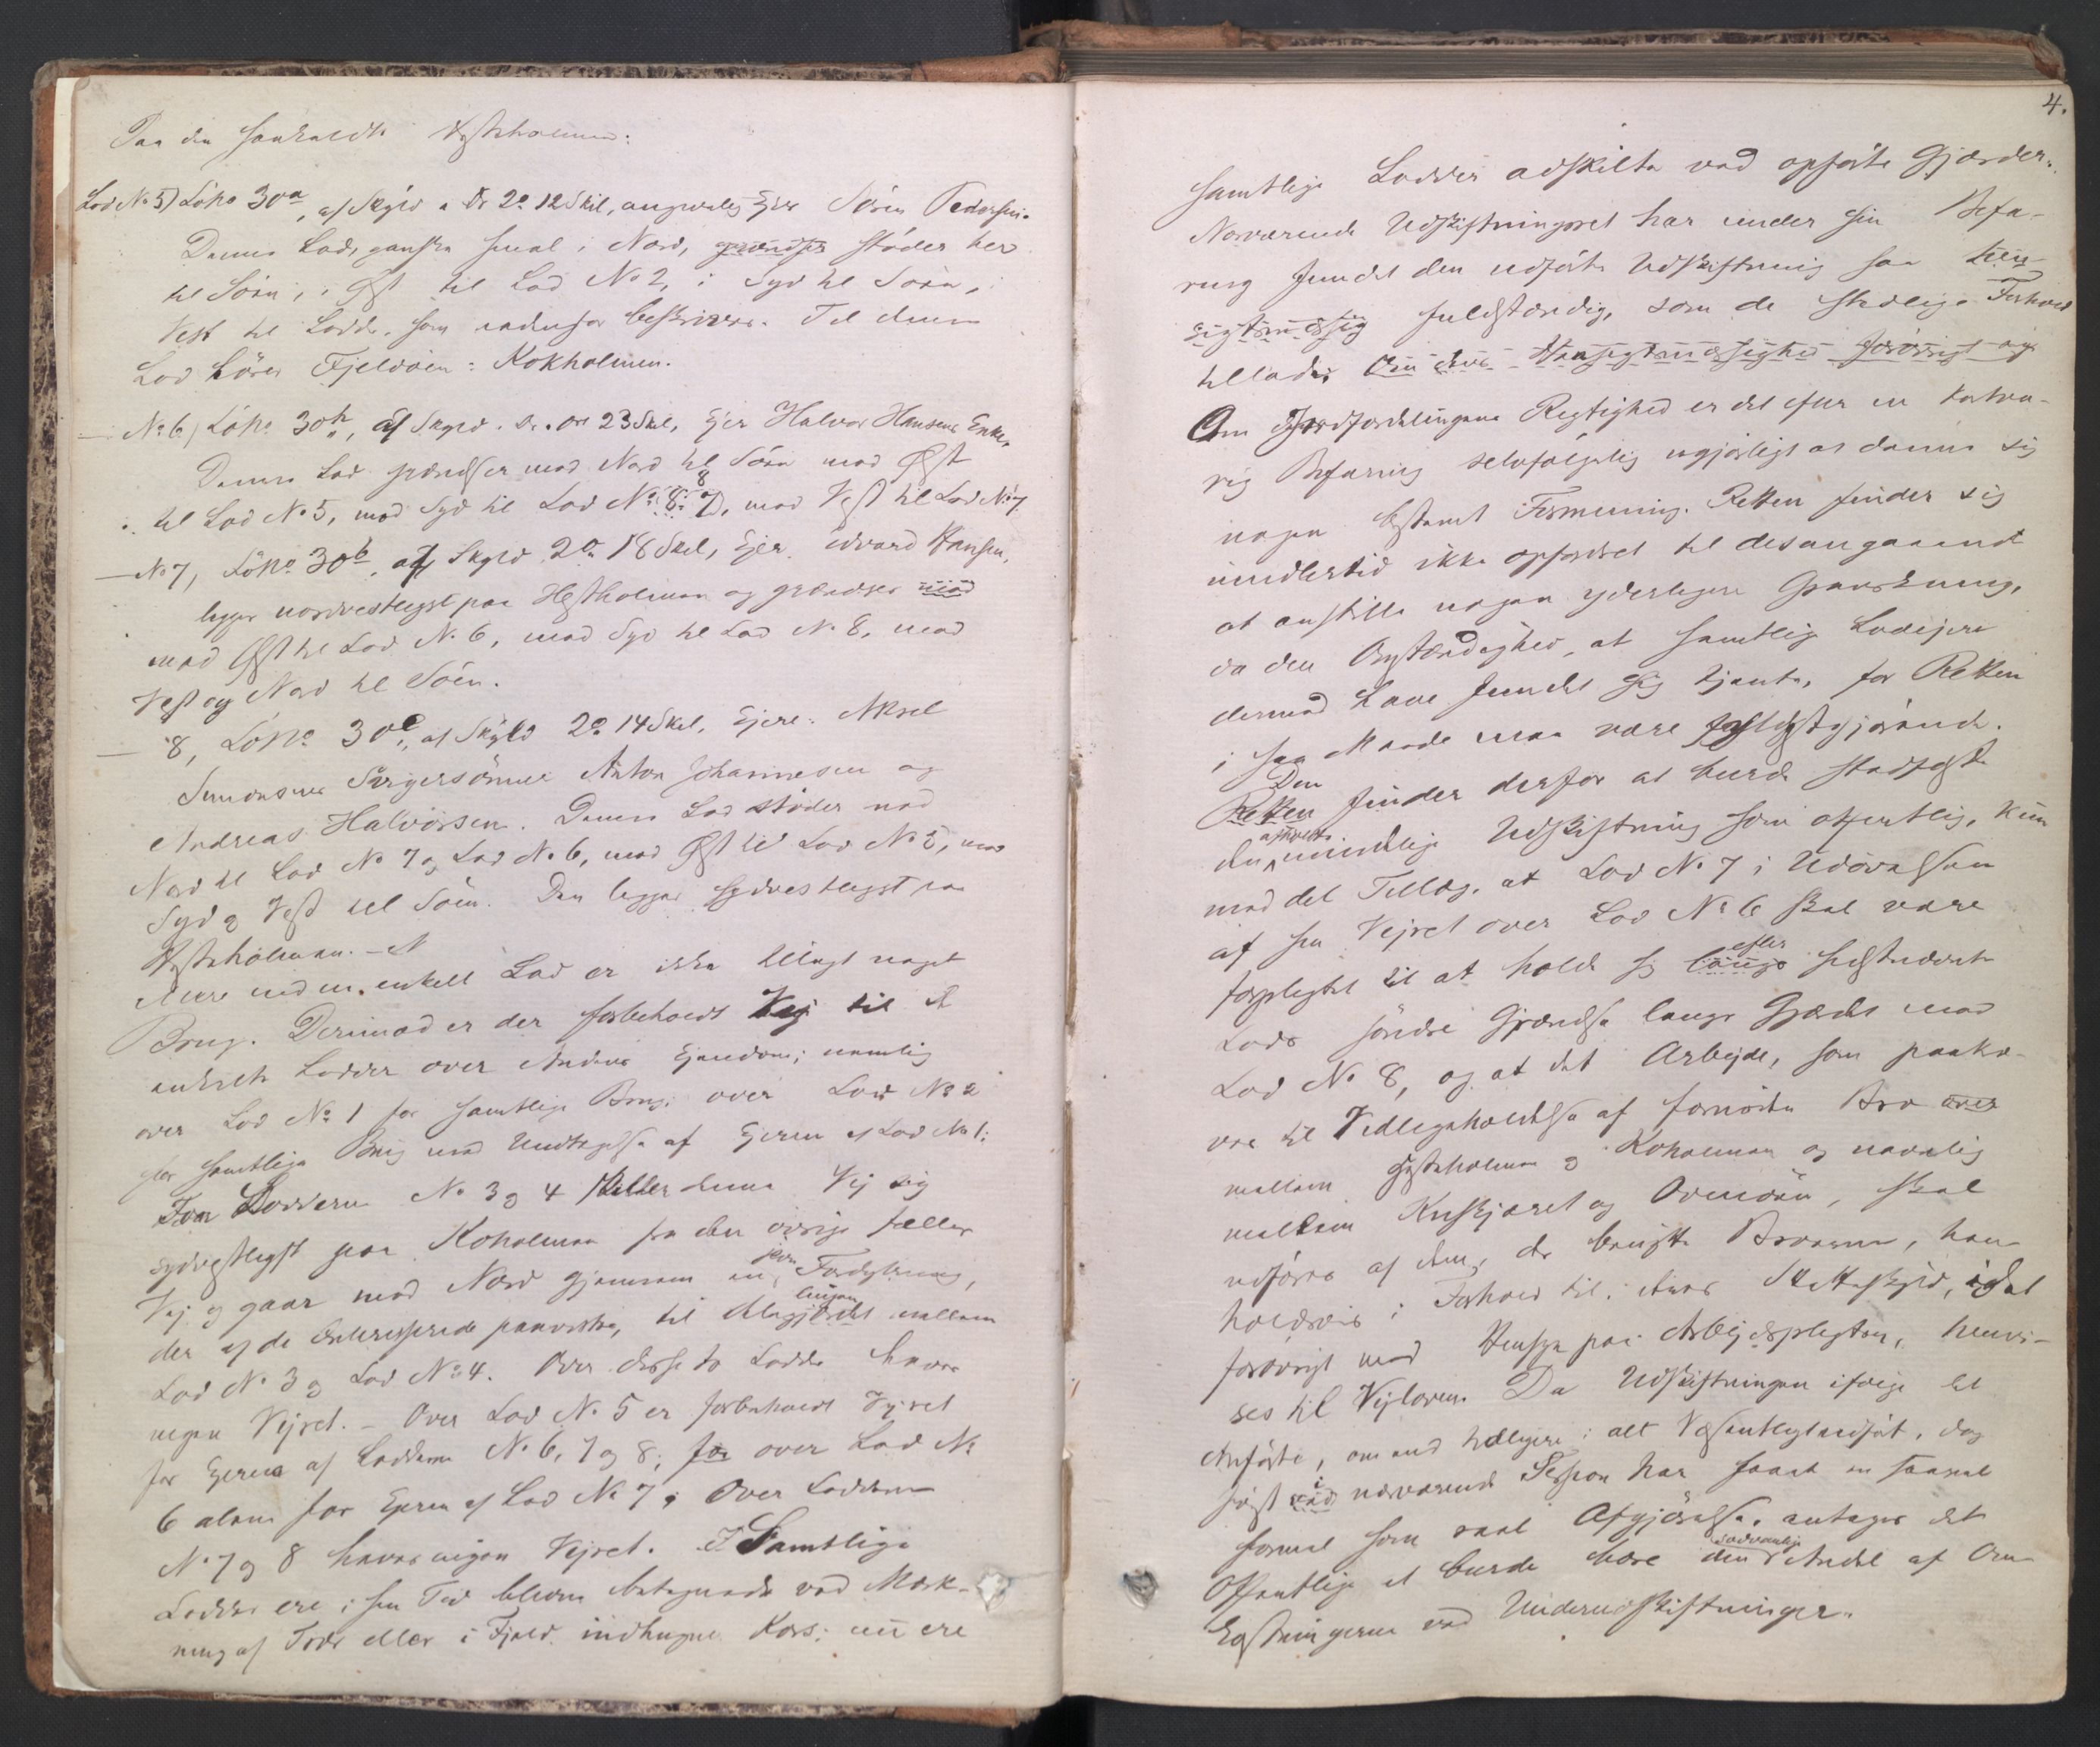 Paa den saakaldte Hestholmen:
Lod No 5) Löbno 30a, af Skyld " Dr 2 o/ 12 Skil, angivelig Ejer Sören Pedersen.
Denne Lod, ganske smal i Nord, grændser støder her
til Söen, i Øst til Lod No 2, i Syd til Söen, i
Vest til Lodder, som nedenfor beskrives. Til denne
Lod hörer Fjeldöen: Kokholmen.
— No 6, Löbno 30h, af Skyld 23 Skil, Ejer Halvor Hansens Enke.
Denne Lod grændser mod Nord til Söen mod Øst
til Lod No 5, mod Syd til Lod No 8 7, mod Vest til Lod No 7
— No 7, Löbno 30b, af Skyld 2 o/ 18 Skil, Ejer Edvard Hansen,
ligger nordvestligst paa Hestholmen og grændser mod
mod Øst til Lod No 6, mod Syd til Lod No 8, mod
Vest og Nord til Söen.
— 8, Löbno 30c, af Skyld 2 o/ 14 Skil, Ejere: Aksel
Simonsens Svigersönner Anton Johannesen og
Andreas Halvorsen. Denne Lod støder mod
Nord til Lod No 7 og Lod No 6, mod Øst til Lod No 5, mod
Syd og Vest til Söen. Den ligger sydvestligst paa
Hestholmen. –
Mere end en enkelt Lod er ikke tillagt noget
Brug. Derimod er der forbeholdt Vej til
enkelte Lodder over Andres Ejendom; nemlig
over Lod No 1 for samtlige Brug; over Lod No 2
for samtlige Brug med Undtagelse af Ejeren af Lod No 1;
For Lodderne No 3 og 4 skiller denne Vej sig
sydvestligst paa Koholmen fra den övrige fælles
Vej og gaar mod Nord gjennem en Fordybning,
der af de Interesserede paavistes, til mellem
Lod No 3 og Lod No 4. Over disse to Lodder haves
ingen Vejret. – Over Lod No 5 er forbeholdt Vejret
for Ejerne af Lodderne No 6, 7 og 8; for over Lod No
6 alene for Ejeren af Lod No 7; Over Lodderne
No 7 og 8 haves ingen Vejret. Samtlige
Lodder ere i sin Tid blevne betegnede ved Mærk-
ning af Trær eller i Fjeld indhugne Kors; nu ere
4.
samtlige Lodder adskilte ved opförte Gjærder.
Nærværende Udskiftningsret har under sin Befa-
ring fundet den udförte Udskiftning saa hen-
sigtsmæssig fuldstændig, som de stedlige Forhold
tillader Om dens Hensigtsmæssighed forövrigt og
Om Jordfordelingens Rigtighed er det efter en
Befaring selvfölgelig ugjörligt at danne sig
nogen bestemt Formening. Retten finder sig
imidlertid ikke opfordret til desangaaende
at anstille nogen yderligere Granskning,
da den Omstændighed, at samtlige Lodejere
dermed have fundet sig tjente, for Retten
i saa Maade maa være fyldestgjörende.
Den
Retten finder derfor at burde stadfæste
den mindelige Udskiftning som offentlig, kun
med det Tillæg, at Lod No 7 i Udövelsen
af sin Vejret over Lod No 6 skal være
forpligtet til at holde sig langs efter sidstnævnte
Lods söndre Grændse langs Gjærdet mod
Lod No 8, og at det Arbejde, som paakræ-
ves til Vedligeholdelse af fornöden Bro over
mellem Hestholmen og Koholmen og navnlig
mellem Knskjæret og Ormöen, skal
udföres af dem, der benytte Broerne, hen-
holdsvis i Forhold til deres Matrikskyld, idet
forövrigt med Hensyn paa Arbejdspligten, henvi-
ses til Vejloven. Da Udskiftningen ifölge det
Anförte, om end tidligere i alt Væsentligt udfört, dog
förgst ved i nærværende Session har faaet en saavel
formel som reel Afgjörelse, antages det
Offentlige at burde bære den sædvanlige Andel af Om-
kostningerne ved Underudskiftninger.